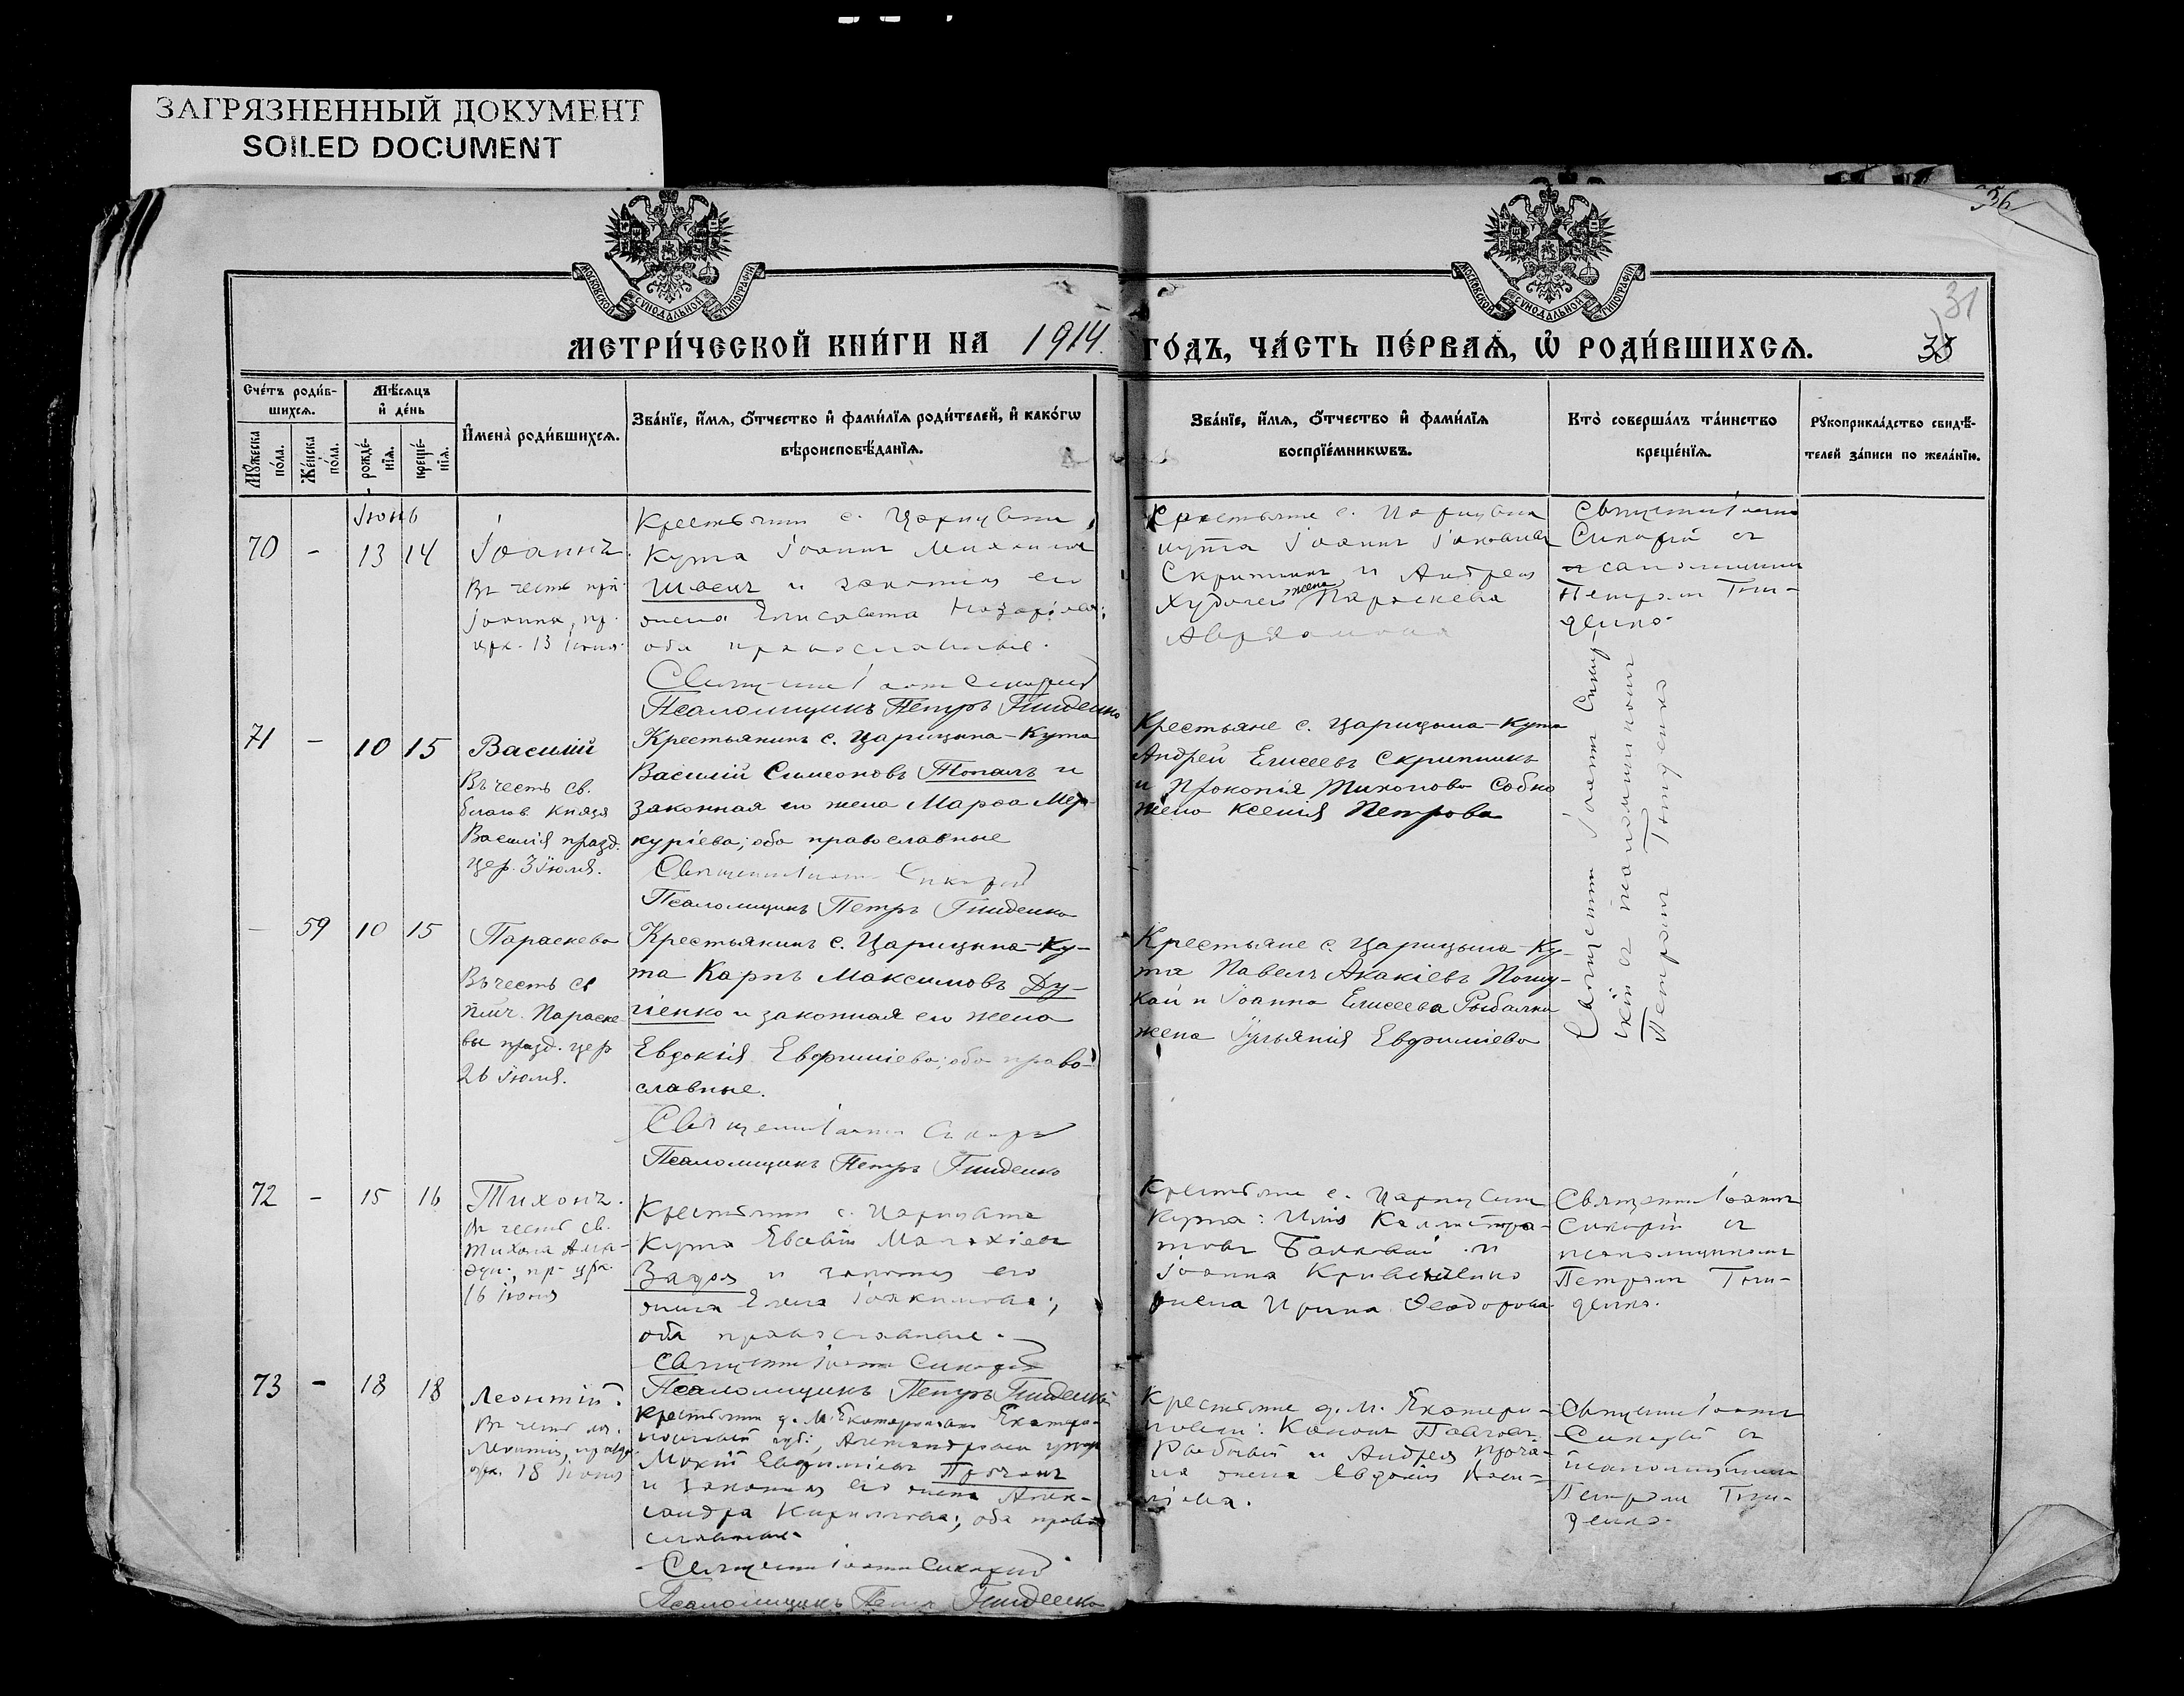 ЗАГРЯЗНЕННЫЙ ДОКУМЕНТ
SOILED DOCUMENT
36
31
МОСКОВСКОЙ СѴНОДАЛЬНОЙ ТИПОГРАФІИ
МОСКОВСКОЙ СѴНОДАЛЬНОЙ ТИПОГРАФІИ
МЕТРИ́ЧЕСКОЙ КНИ́ГИ НА 1914 ГО́ДЪ, ЧА́СТЬ ПЕ́РВАѦ, Ѡ҆ РОДИ́ВШИХСѦ.
35
Сче́тъ роди́в-
шихсѧ.
Мꙋ́жеска
по́ла.
Же́нска
по́ла.
Мѣ́сѧцъ
и҆ де́нь
рожде́-
нїѧ.
креще́-
нїѧ.
И҆мена̀ роди́вшихсѧ.
Зва́нїе, и҆́мѧ, ѻ҆́тчество и҆ фами́лїѧ роди́телей, и҆ како́гѡ
вѣроисповѣ́данїѧ.
Зва́нїе, и҆́мѧ, ѻ҆́тчество и҆ фами́лїѧ
воспрїе́мникѡвъ.
Кто̀ соверша́лъ та́инство
креще́нїѧ.
Рꙋкоприкла́дство свидѣ́-
телей за́писи по жела́нїю.
Іюнь
70 - 13 14
Іоаннъ.
Въ честь
Іоанна, пр.
црк. 13 Іюня.
Крестьянин с. Царицына
Кута Іоаннъ Михаилов
Швецъ и законная его
жена Елисавета
оба православные.
Священникъ Іоаннъ Сикорскій
Псаломщикъ Петръ Гниденко
Крестьяне с. Царицына
Кута Іоаннъ Іаковлевъ
Скрипникъ и Андрея
Худолей жена Параскева
Священникъ Іоаннъ
съ
псаломщикомъ
Петромъ Гни-
денко.
71 - 10 15
Василій
Въ честь св.
благов. Князя
Василія празд.
цер. 3 Іюля.
Крестьянинъ с. Царицына-Кута
Василій Симеоновъ Топалъ и
законная его жена Марѳа Мер-
куріева; оба православные
Псаломщикъ Петръ Гниденко
Крестьяне с. Царицына-Кута
Андрей Елисеевъ Скрипникъ
и Прокопія Тихонова Собко
жена Ксенія Петрова
Священникъ Іоаннъ Сикор-
скій съ псаломщикомъ
Петромъ Гниденко
- 59 10 15
Параскева
Въ честь св
Параске
вы празд. цер
26 Іюля.
Крестьянинъ с. Царицына-Ку-
та Карпъ Максимовъ Ду-
и законная его жена
Евдокія Евфиміева; оба право-
славные.
Псаломщикъ Петръ Гниденко
Крестьяне с. Царицына-Ку-
та Павелъ Акакіевъ
и Іоанна Елисеева Рыбалки
жена Іуліянія Евфиміева
72 - 15 16
Тихонъ.
Въ честь св.
Тихона Ама-
пр. црк.
16 Іюня
Крестьянин с. Царицына
Кута Евсевій Малахіевъ
и законная его
жена Елена Іоакимова;
оба православные.
Священникъ Іоаннъ Сикорскій
Псаломщикъ Петръ Гниденко
Крестьяне с. Царицына
Кута: Илія Каллистра-
товъ и
Іоанна
жена Ирина Ѳеодорова
Священникъ Іоаннъ
Сикорскій съ
псаломщикомъ
Петромъ Гни-
денко.
73 - 18 18
Леонтій.
Въ честь
Леонтія,
црк. 18 Іюня
Крестьянин д. М. Екатериновки Екатери-
нославской губ.,
Мокій Евфиміевъ
и законная его жена Алек-
сандра Кириллова; оба право-
славные.
Священникъ Іоаннъ Сикорскій
Псаломщикъ Петръ Гниденко
Крестьяне д. М. Екатери-
новки: Павловъ
и Андрея
жена Евдокія Васи-
ліева.
Священникъ Іоаннъ
Сикорскій съ
псаломщикомъ
Петромъ Гни-
денко.